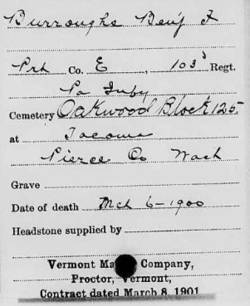 Burroughs Benj F
Pvt Co. E, 103d Regt.
Pa Infy
Cemetery Oakwood Block 125
at Tacoma
Pierce Co Wash
Grave
Date of death Mch 6-1900
Headstone supplied by
Vermont Ma Company,
Proctor, Vermont,
Contract dated March 8, 1901